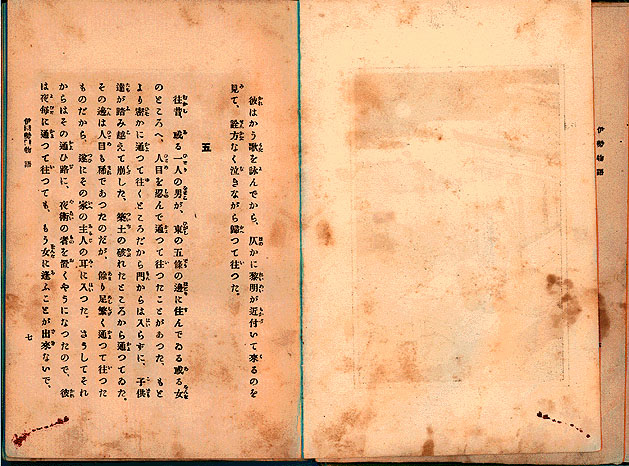 伊勢物語
彼はかう歌を詠んでから、仄かに黎明が近付いて來るのを
見て、詮方なく泣きながら歸つて往つた。
五
往昔、或る一人の男が、東の五條の邊に住んでゐる或る女
のところへ、人目を忍んで通つて往つたことがあつた。もと
より密かに通つて往くところだから門からは入らずに、子供
達が踏み越えて崩した、築土の破れたところから通つてゐた。
その邊は人目も稀であつたのだが、餘り足繁く通つて往つた
ものだから、遂にその家の主人の耳に入つた。さうしてそれ
からはその通ひ路に、夜衞の者を置くやうになつたので、彼
は夜每に通つて往つても、もう女に逢ふことが出來ないで、
伊勢物語
七